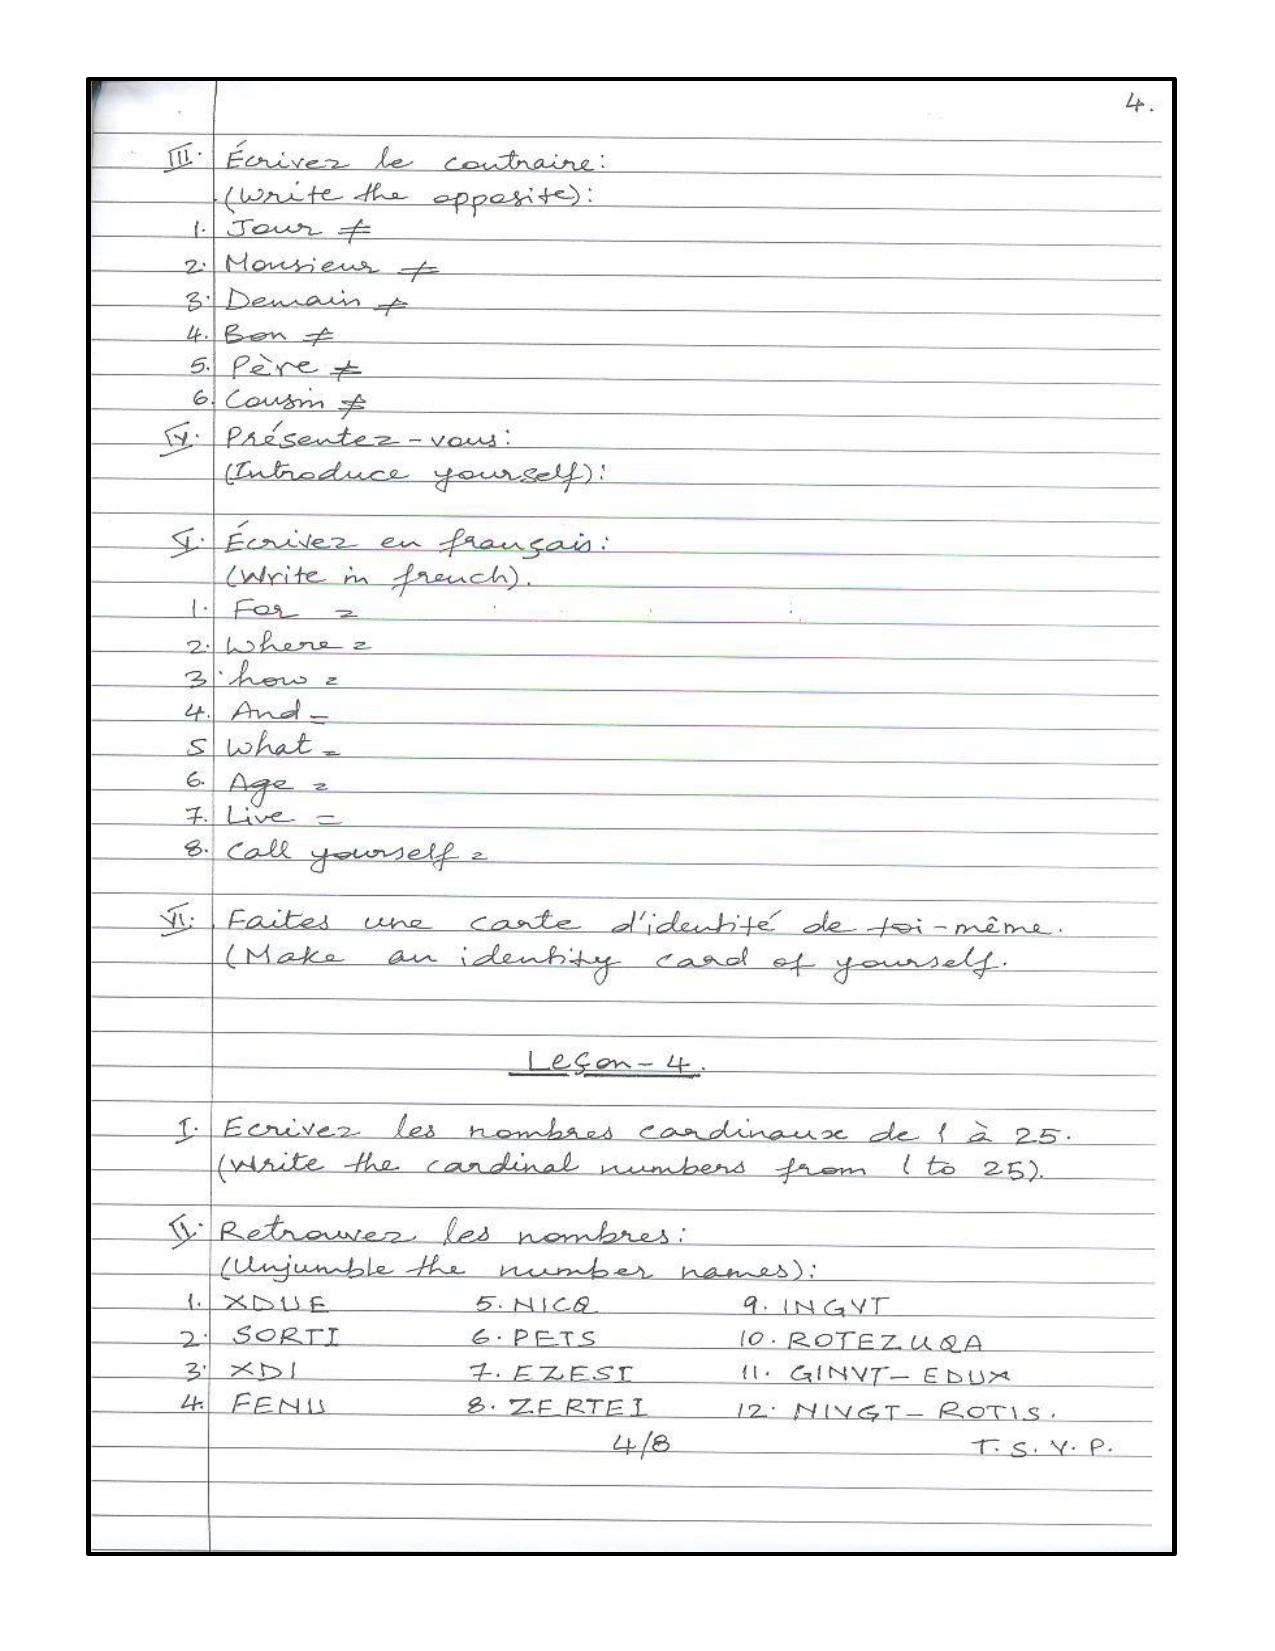 4.
III. Écrivez le contraire:
(Write the opposite):
1. Jour ≠
2. Monsieur ≠
3. Demain ≠
4. Bon ≠
5. Père ≠
6. Cousin ≠
IV. Présentez-vous:
(Introduce yourself):
V. Écrivez en français:
(Write in french).
1. For =
2. Where =
3. how =
4. And =
5 What =
6. Age =
7. Live =
8. Call yourself =
VI. Faites une carte d'identité de toi-même.
(Make an identity card of yourself.
Leçon-4.
I. Ecrivez les nombres cardinaux de 1 à 25.
(Write the cardinal numbers from 1 to 25).
II. Retrouvez les nombres:
(Unjumble the number names):
1. XDUE 5. NICQ 9. INGVT
2. SORTI 6. PETS 10. ROTEZUQA
3. XDI 7. EZESI 11. GINVT-EDUX
4. FENU 8. ZERTEI 12. NIVGT-ROTIS.
4/8 T. S. V. P.